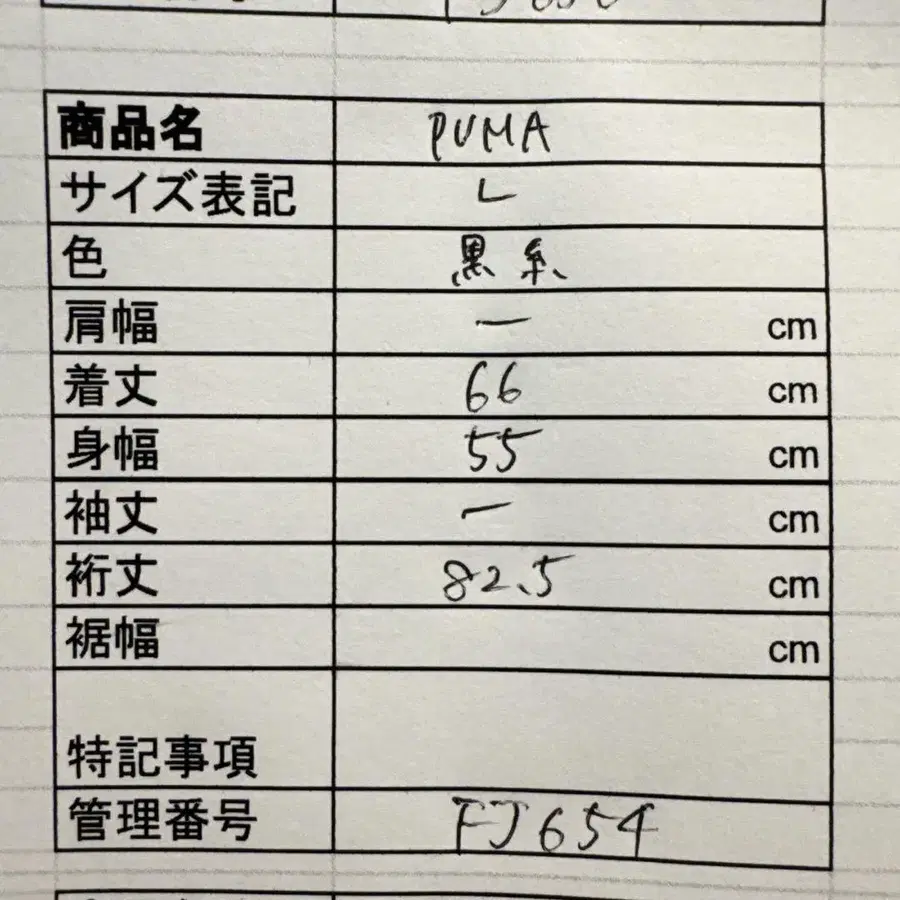 商品名 PUMA
サイズ表記 L
色 黒系
肩幅 ー cm
着丈 66 cm
身幅 55 cm
袖丈 ー cm
裄丈 82.5 cm
裾幅 cm
特記事項
管理番号 FJ654